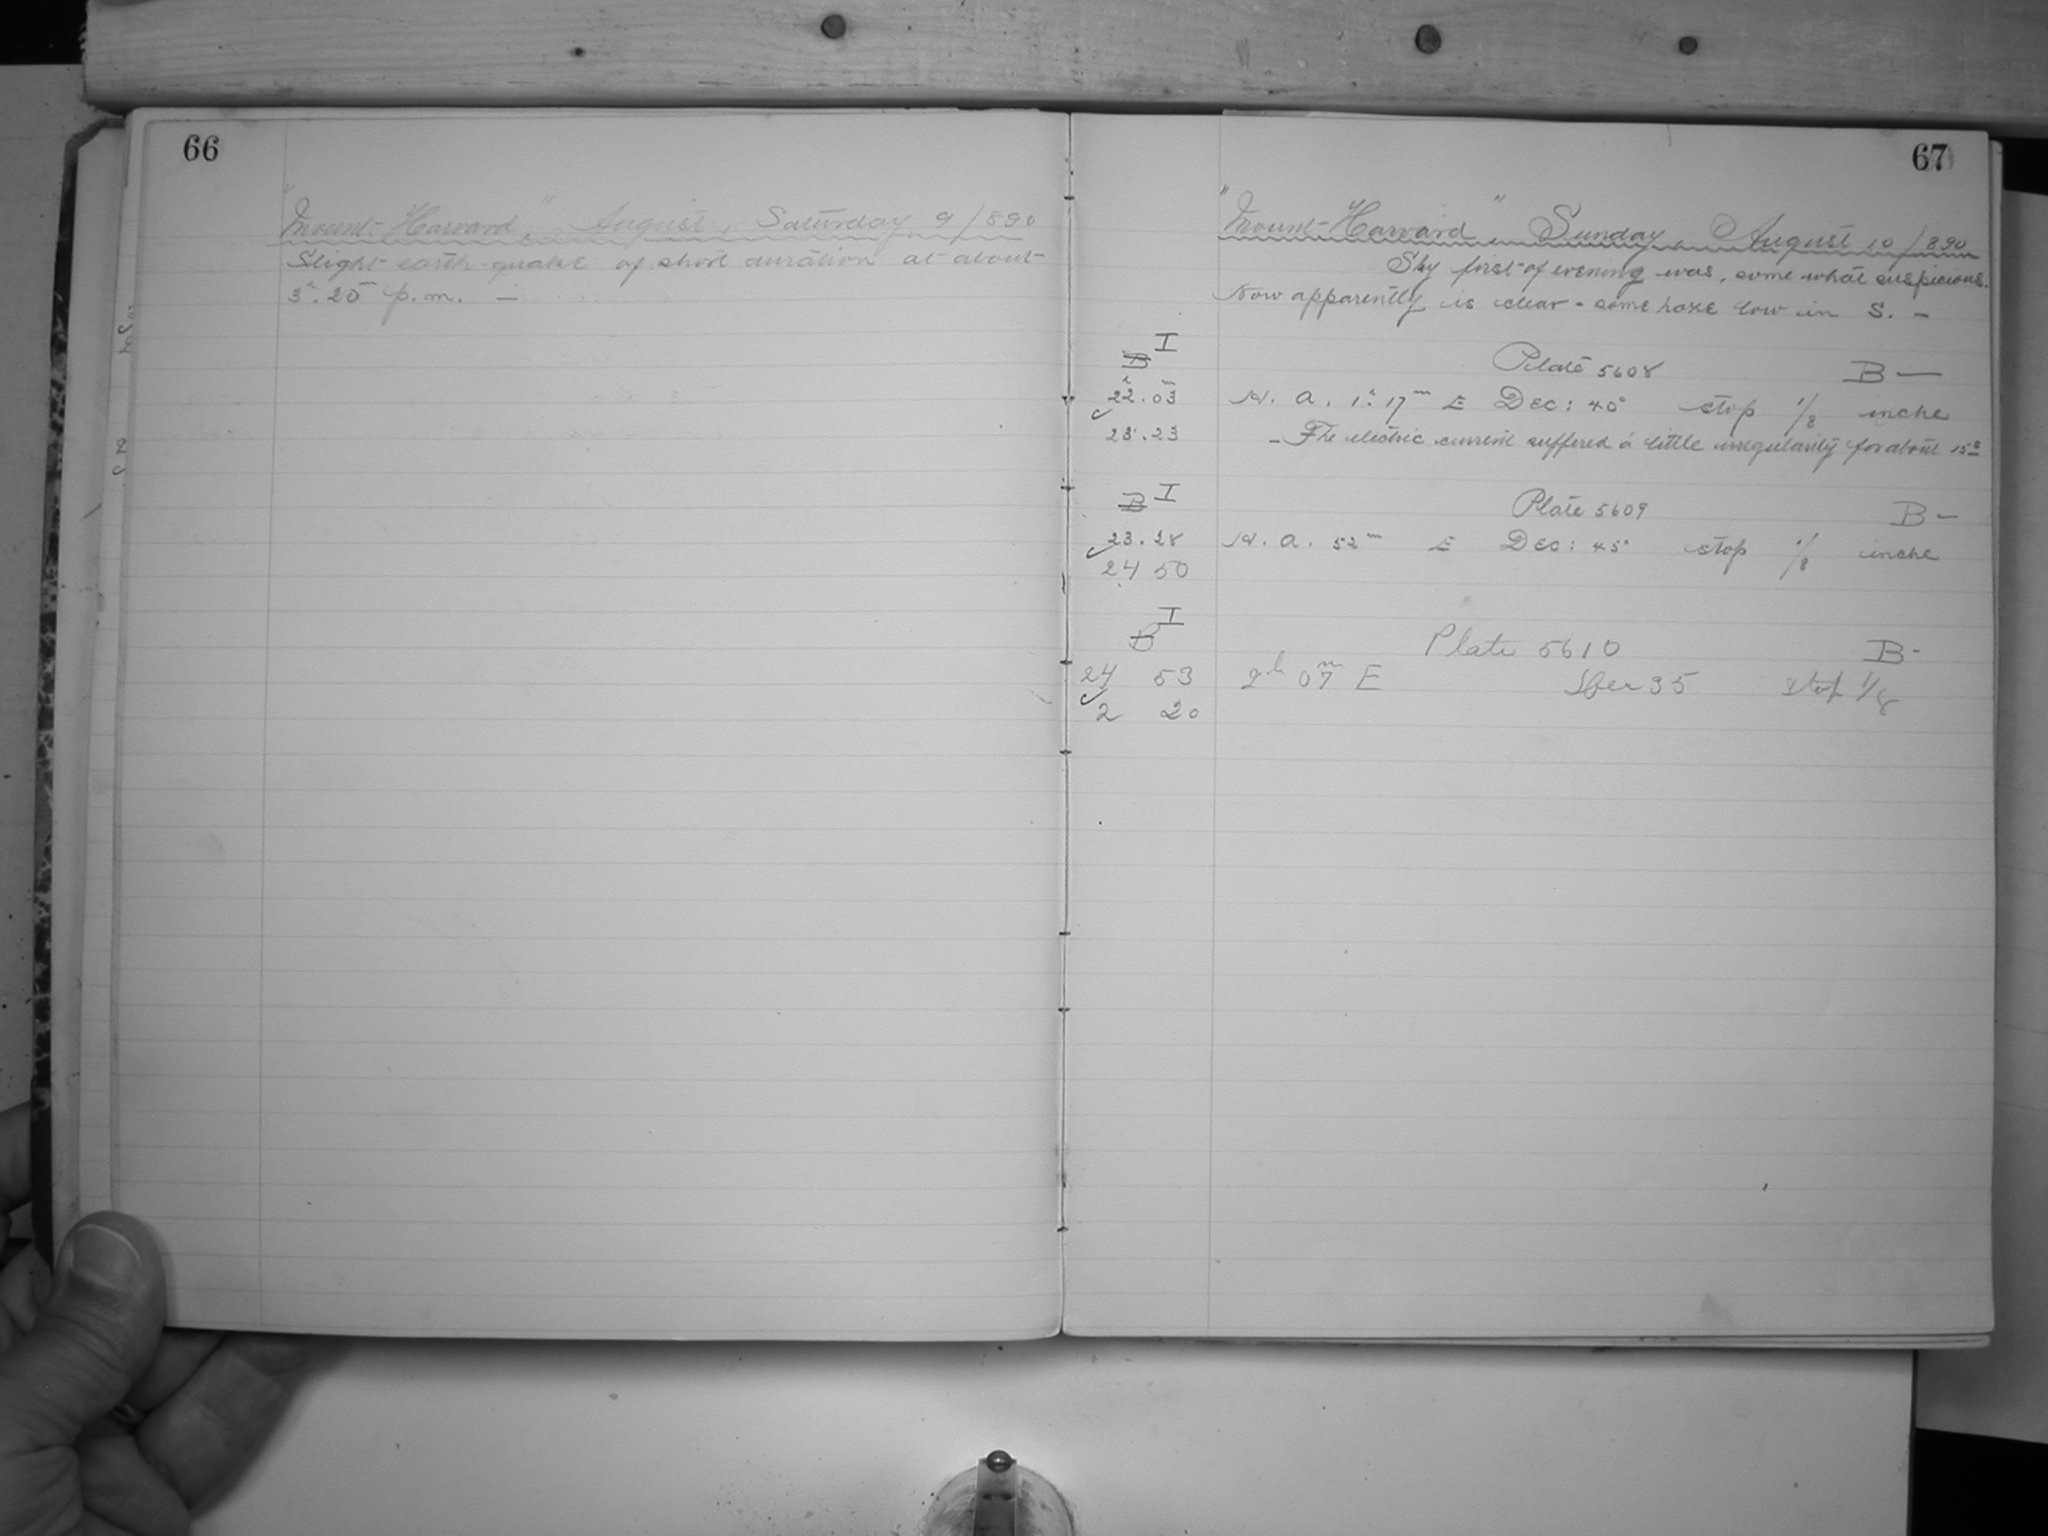 66
"Mount-Harvard," August, Saturday 9/890
Slight earth-quake of short duration at about
3h. 20m p.m. —
67
"Mount-Harvard", Sunday, August 10/890
Sky first of evening was, some what suspicious.
Now apparently is clear - some haze low in S. —
B I
Plate 5608 B —
22h.03m H. A. 1h. 17m E Dec: 40° stop 1/8 inche
23.23 — The electric current suffered a little irregularity for about 15s
B I
Plate 5609 B —
23.28 H. A. 52m E Dec: 45° stop 1/8 inche
24 50
B I
Plate 5610 B -
24 53 2h 07m E 35 stop 1/8
2 20